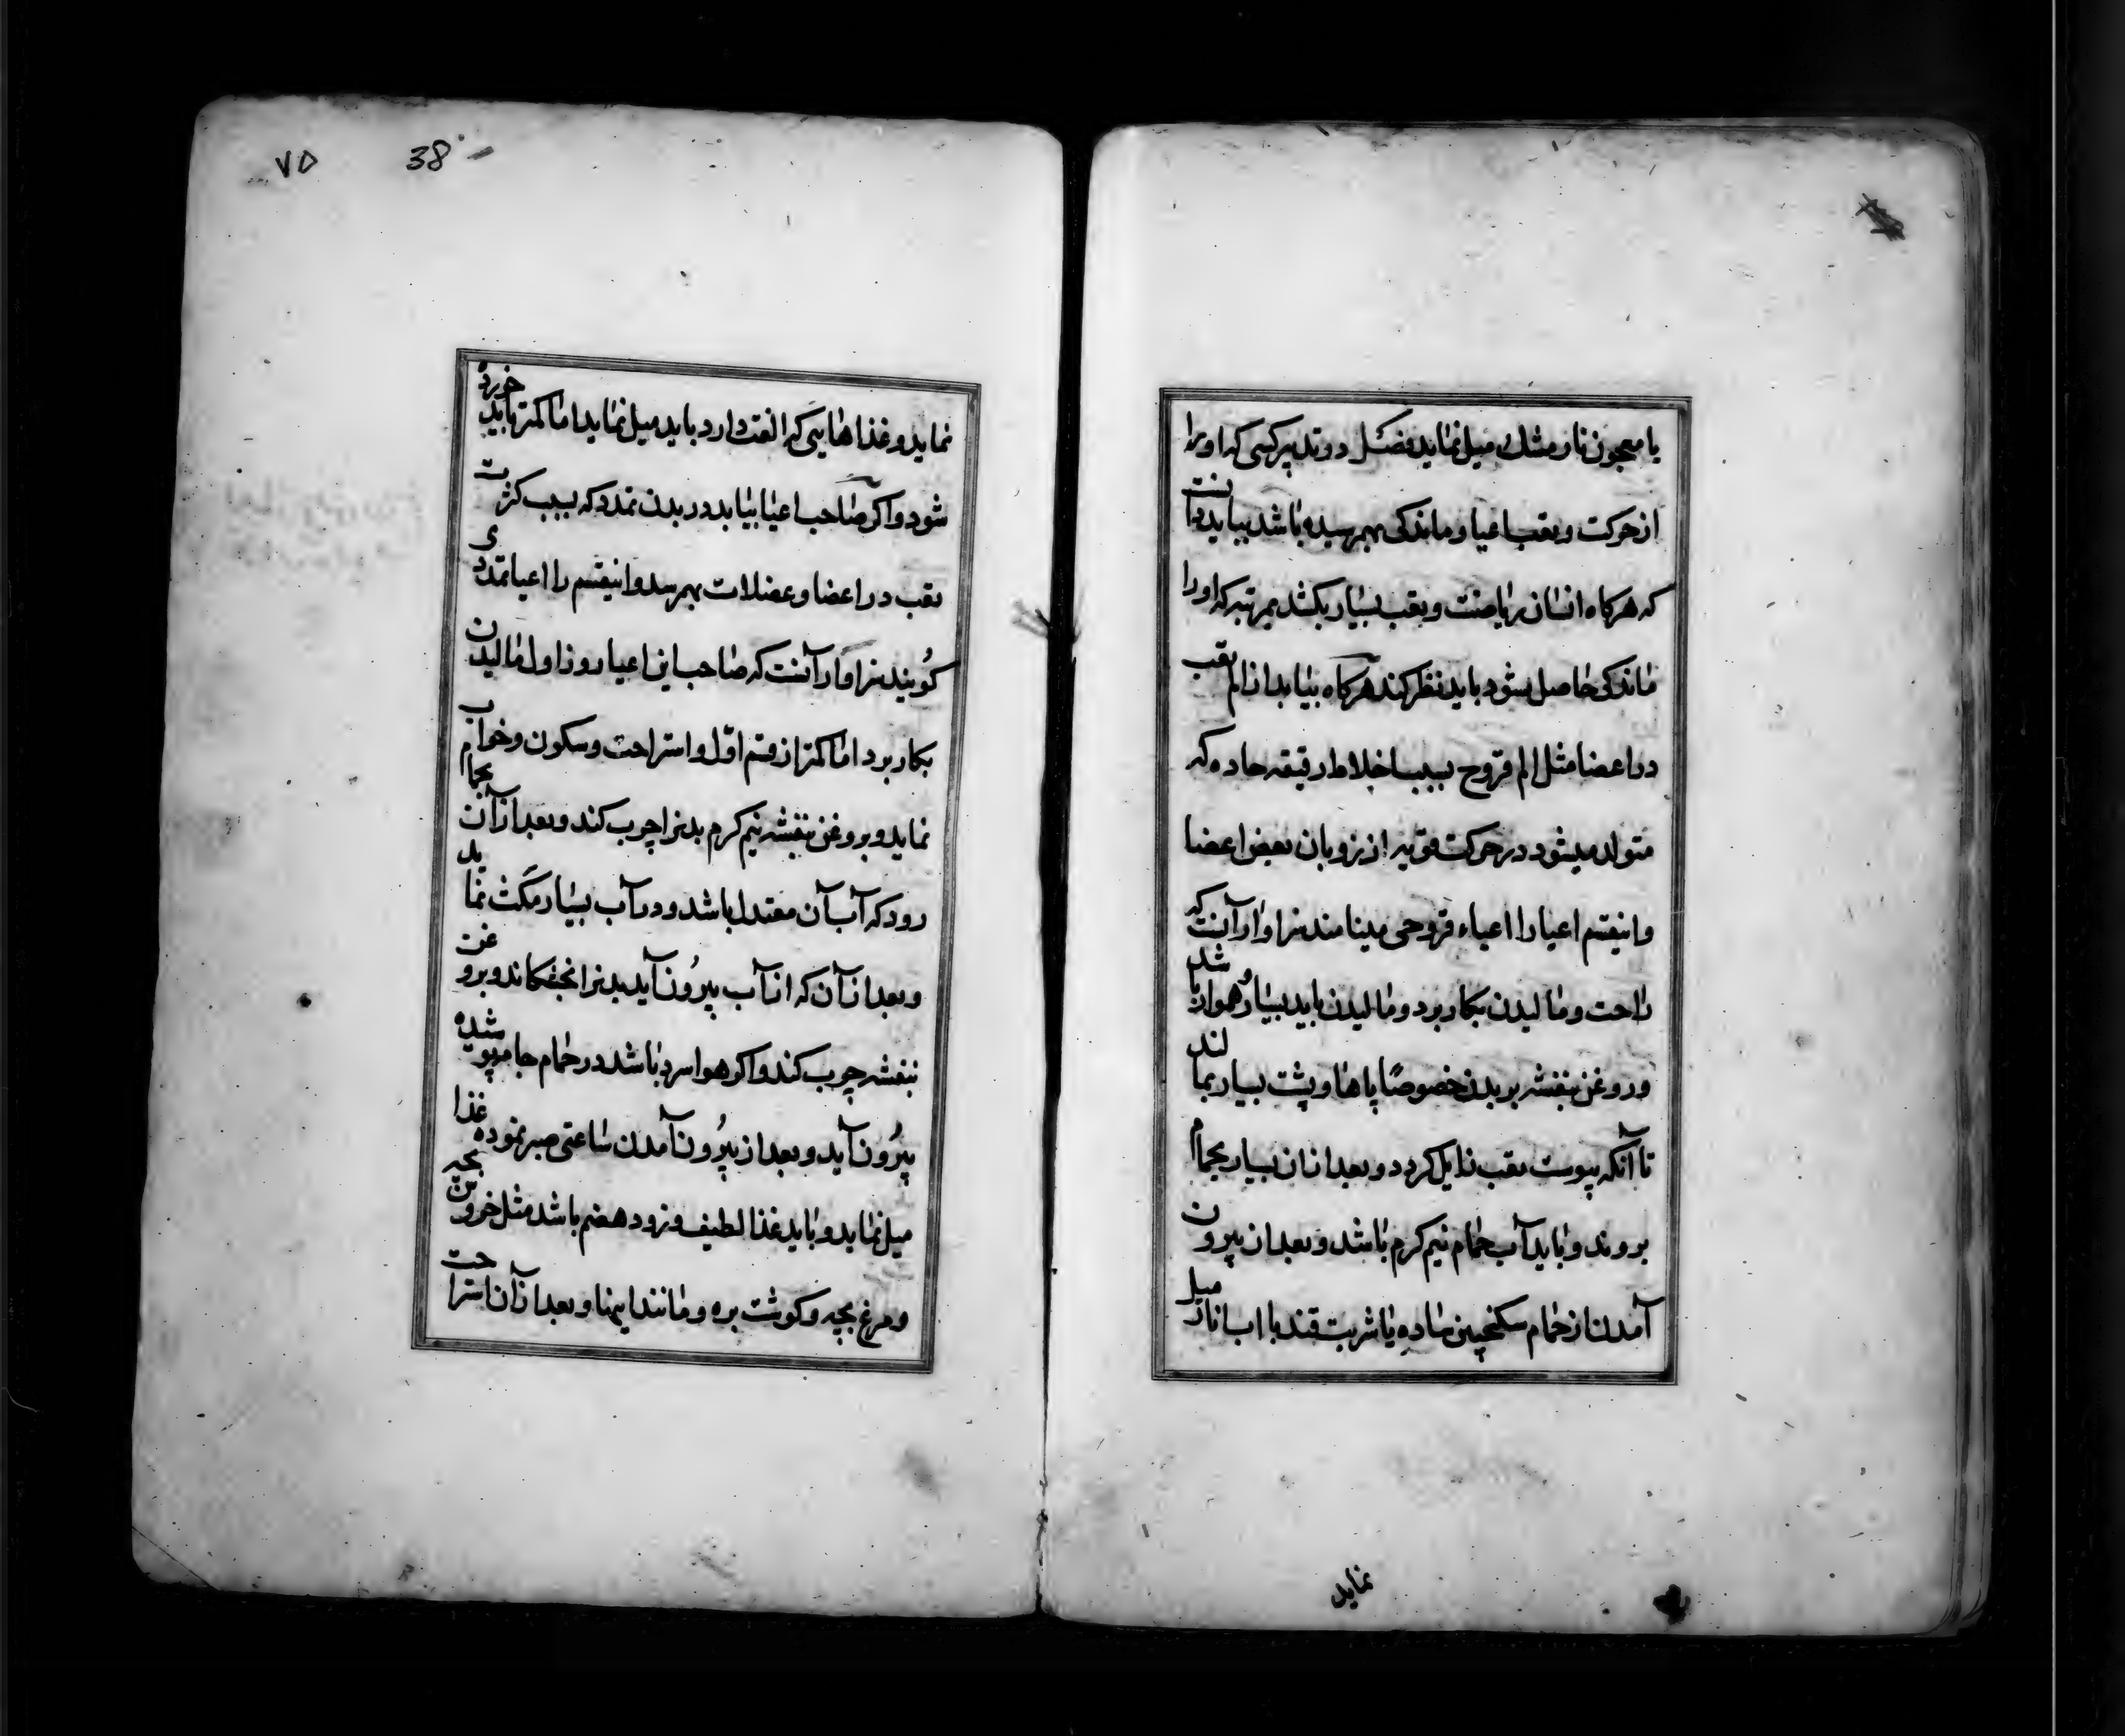 یا معجون نار مشک میل نماید فصل در تدبیر کسی که او را
از حرکت و تعب اعیا و ماندکی بهمرسیده باشد بباید دانست
که هرکاه انسان ریاضت و تعب بسیار بکشد بمرتبه که او را
ماندکی حاصل شود باید نظر کند هرکاه بیابد از الم تعب
در اعضا مثل الم قروح بسبب اخلاط رقیقه حاده که
متولد میشود در حرکت قویه از ذوبان بعض اعضا
و اینقسم اعیا را اعیاء قروحی مینامند سزاوار آنست که
راحت و مالیدن بکار برد و مالیدن باید بسیار هموار باشد
و روغن بنفشه بر بدن خصوصًا پاها و پشت بسیار بمالند
تا آنکه پیوست تعب زایل کردد و بعد از ان بسیار بحمام
بروند و باید آب حمام نیم کرم باشد و بعد از بیرون
آمدن از حمام سکنجبین ساده یا شربت قند با اب انار میل
نماید
۷۵
38
نماید و غذاهایی که الفت دارد باید میل نماید اما کمتر باید خورده
شود و اکر صاحب اعیا بیابد در بدن تمدد که بسبب کثرت
تعب در اعضا و عضلات بهمرسد و اینقسم را اعیا تمددی
کویند سزاوار آنست که صاحب این اعیا روز اول مالیدن
بکار برد اما کمتر از قسم اوّل و استراحت و سکون و خواب
نماید و بروغن بنفشه نیم کرم بدنرا چرب کند و بعد از آن بحمام
رود که آب آن معتدل باشد و در آب بسیار مکث نماید
و بعد از آن که از آب بیرون آید بدنرا بخشکاند و بروغن
بنفشه چرب کند و اکر هوا سرد باشد در حمام جامه پوشیده
بیرون آید و بعد از بیرون آمدن ساعتی صبر نموده غذا
میل نماید و باید غذا لطیف و زود هضم باشد مثل خروس بچه
و مرغ بچه و کوشت بره و مانند اینها و بعد از آن استراحت